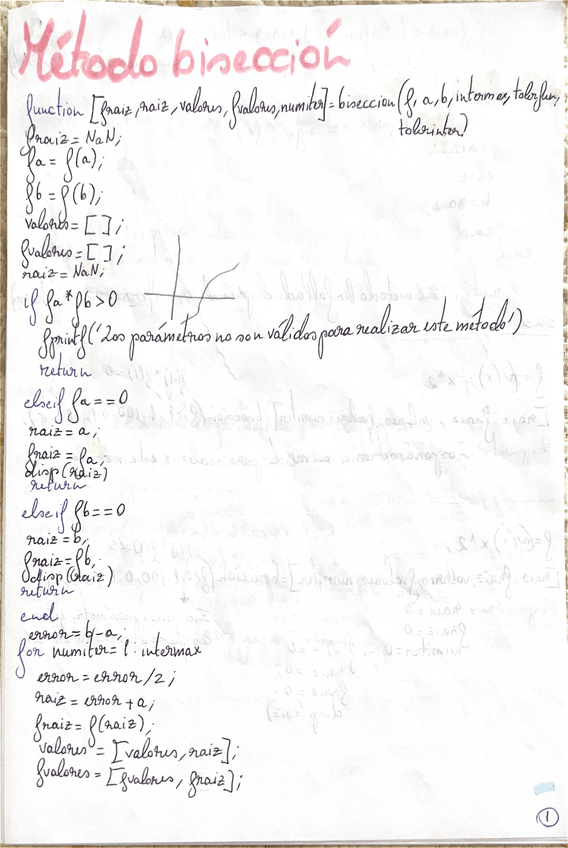 Método bisección
function [fraiz, raiz, valores, fvalores, numiter] = biseccion (f, a, b, intermax, tolerfun,
tolerinter)
fraiz = NaN;
fa = f(a);
fb = f(b);
valores = [ ];
fvalores = [ ];
raiz = NaN;
if fa * fb > 0
fprintf('Los parámetros no son válidos para realizar este método')
return
elseif fa == 0
raiz = a;
fraiz = fa;
disp(raiz)
return
elseif fb == 0
raiz = b;
fraiz = fb;
disp(raiz)
return
end
error = b - a;
for numiter = 1 : intermax
error = error / 2;
raiz = error + a;
fraiz = f(raiz);
valores = [valores, raiz];
fvalores = [fvalores, fraiz];
1